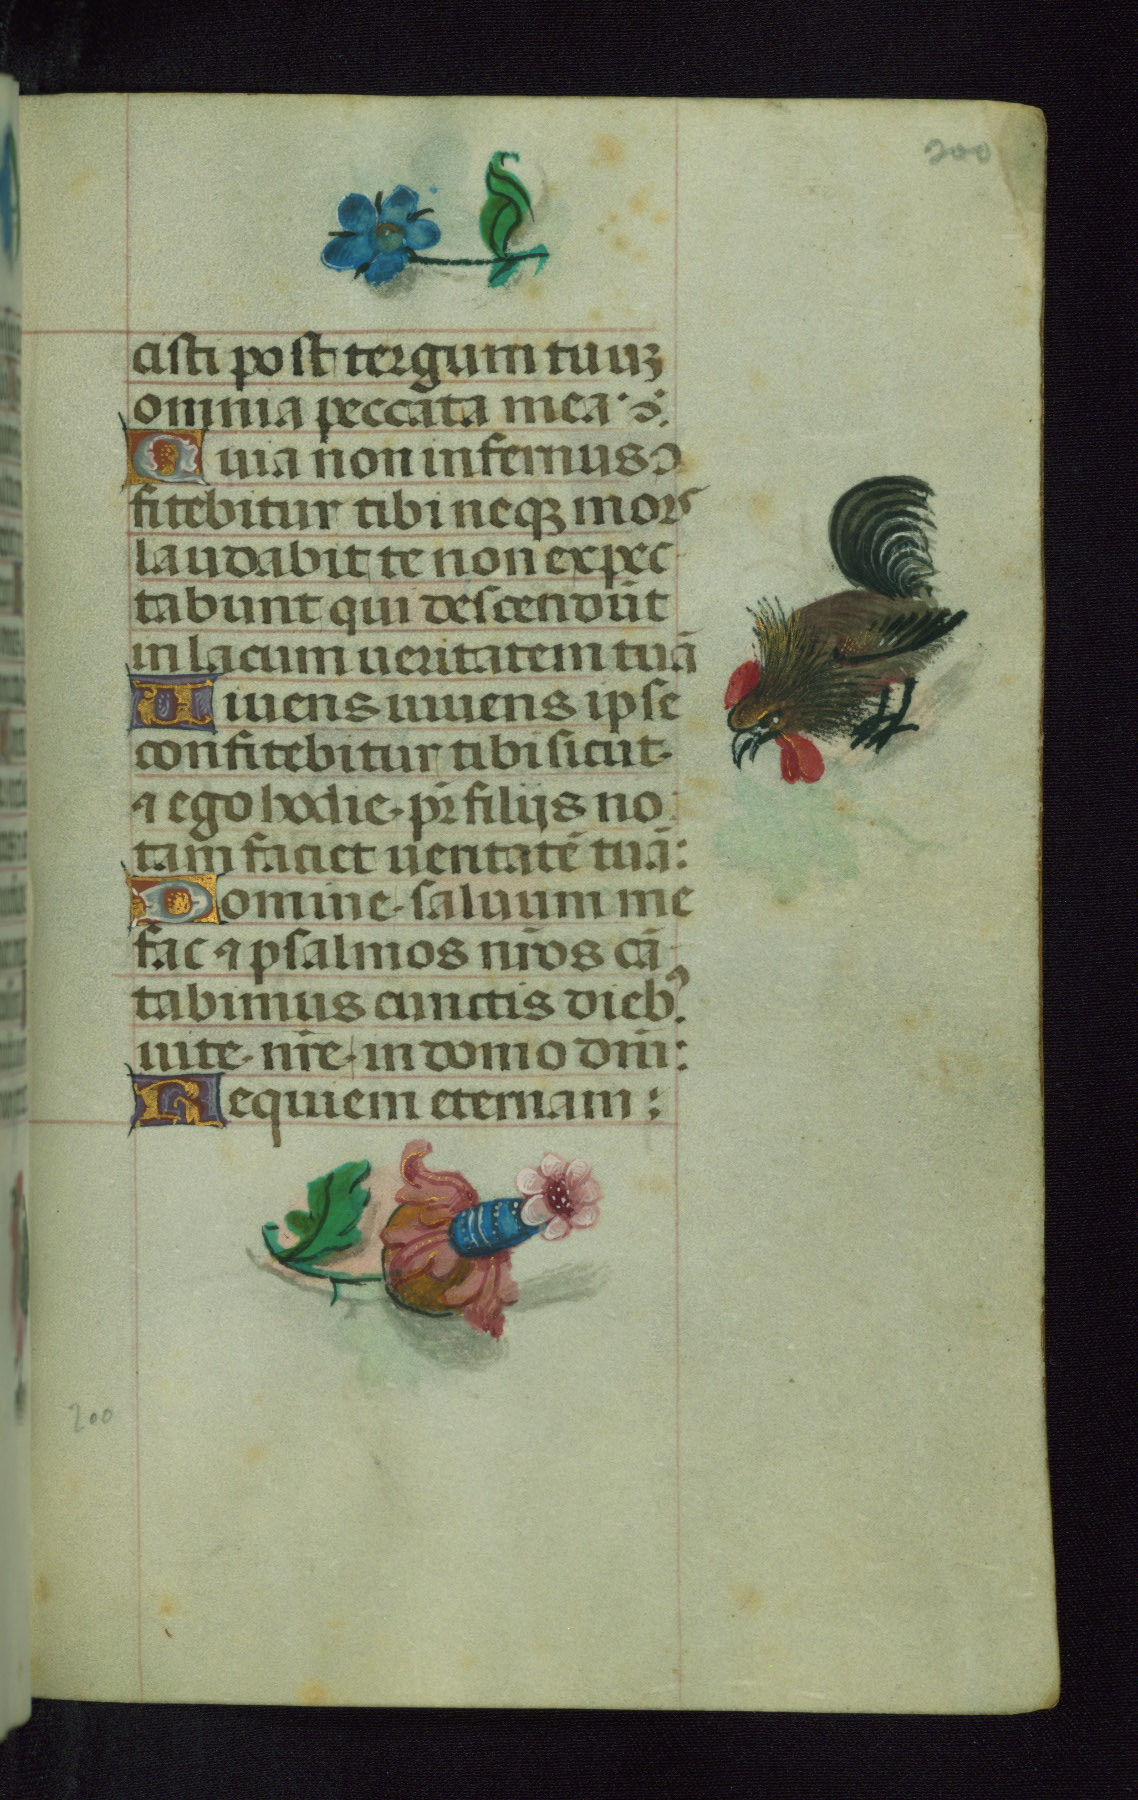 200
cisti post tergum tuuꝫ
omnia peccata mea·
Quia non infernus ↄ
fitebitur tibi neqꝫ mors
laudabit te non expec
tabunt qui descendūt
in lacum ueritatem tuā
Uiuens uiuens ipse
confitebitur tibi sicut
⁊ ego hodie pr̄ filijs no
tam faciet ueritatē tuā:
Domine saluum me
fac ⁊ psalmos nr̄os cā
tabimus cunctis dieb⁹
uite nr̄e in domo dn̄i:
Requiem eternam:
200